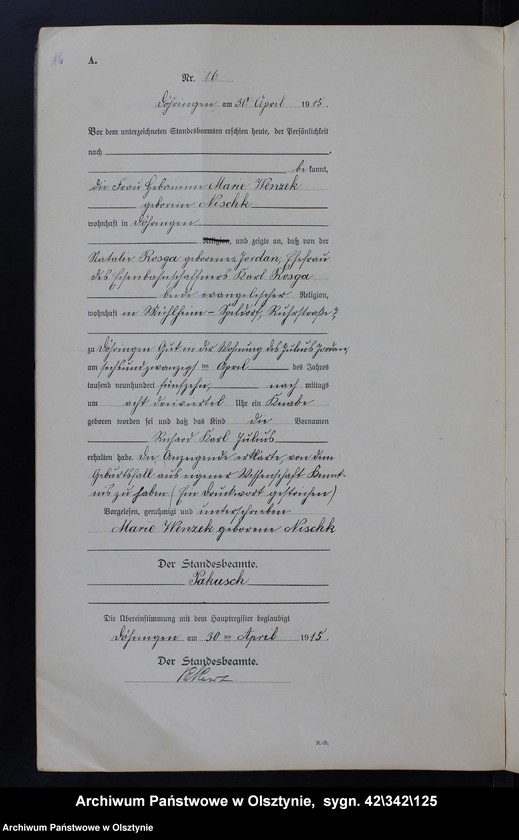 16
A.
Nr. 16
Döhringen, am 30 April 1915.
Vor dem unterzeichneten Standesbeamten erschien heute, der Persönlichkeit
nach
be kannt,
die Frau Hebamme Marie Wenzek
geborene Nischk
wohnhaft in Döhringen
Religion, und zeigte an, daß von der
Natalie Rosga geborene Jordan, Ehefrau
des Eisenbahnschaffners Karl Rosga
beide evangelischer Religion,
wohnhaft in Mühlheim-Speldorf, Ruhrstraße 7,
zu Döhringen Gut in der Wohnung des Julius Jordan,
am sechsundzwanzigsten April des Jahres
tausend neunhundert fünfzehn, nach mittags
um acht dreiviertel Uhr ein Knabe
geboren worden sei und daß das Kind die Vornamen
Richard Karl Julius
erhalten habe. Die Anzeigende erklärte, von dem
Geburtsfall aus eigener Wissenschaft Kennt-
nis zu haben (Ein Druckwort gestrichen)
Vorgelesen, genehmigt und unterschrieben
Marie Wenzek geborene Nischk
Der Standesbeamte.
Pakusch
Die Übereinstimmung mit dem Hauptregister beglaubigt
Döhringen am 30 ten April 1915.
Der Standesbeamte.
Archiwum Państwowe w Olsztynie, sygn. 42\342\125
Archiwum Państwowe w Olsztynie